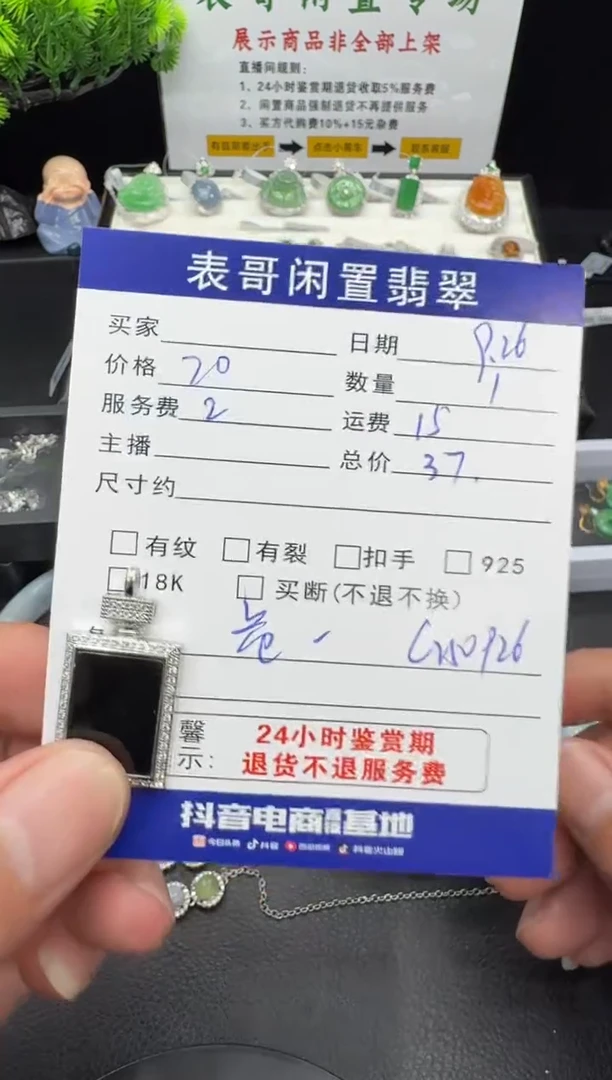 表哥闲置专场
展示商品非全部上架
直播间规则:
1、24小时鉴赏期退货收取5%服务费
2、闲置商品强制退货不再提供服务
3、买方代购费10%+15元杂费
点击小黄车
表哥闲置翡翠
买家 日期 9.26
价格 20 数量 1
服务费 2 运费 15
主播 总价 37.
尺寸约
有纹 有裂 扣手 925
18K 买断(不退不换)
馨 24小时鉴赏期
示: 退货不退服务费
抖音电商 基地
今日头条 抖音 西瓜视频 抖音火山版